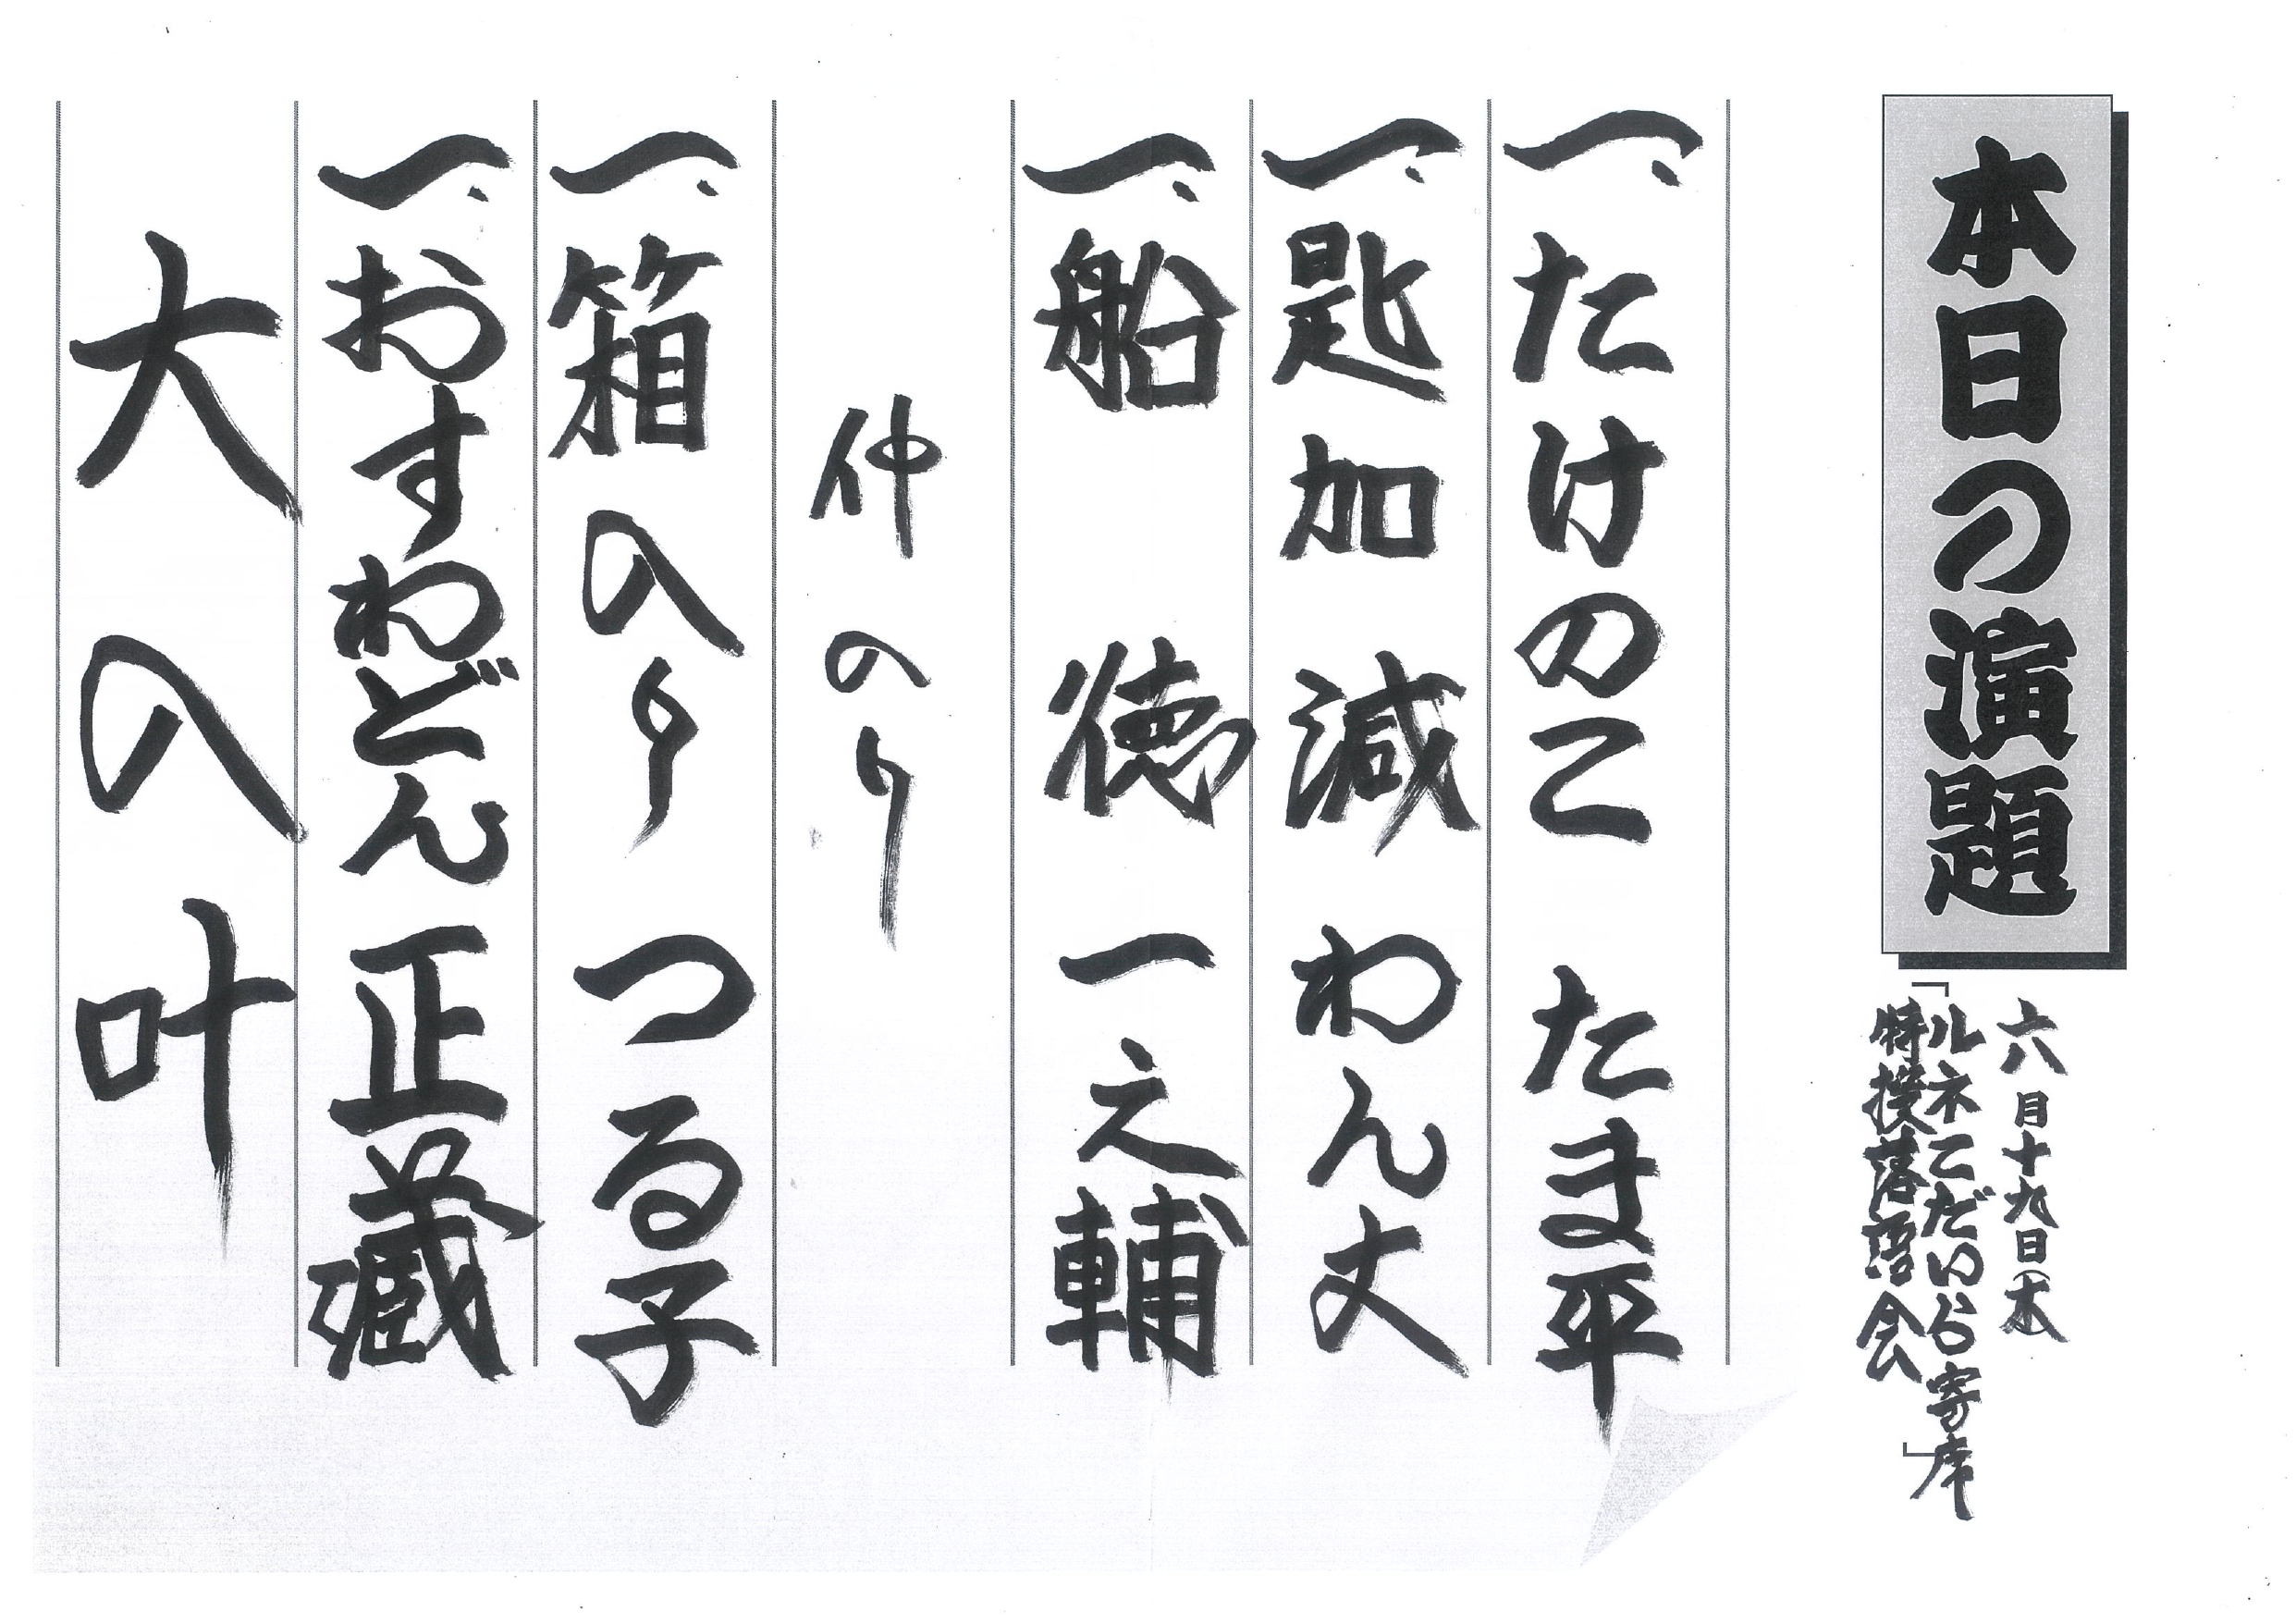 本日の演題
六月十九日(木)
「ルネこだいら寄席
特撰落語会」
一、たけのこ たま平
一、匙加減 わん丈
一、船徳 一之輔
仲入り
一、箱入り つる子
一、おすわどん 正蔵
大入叶